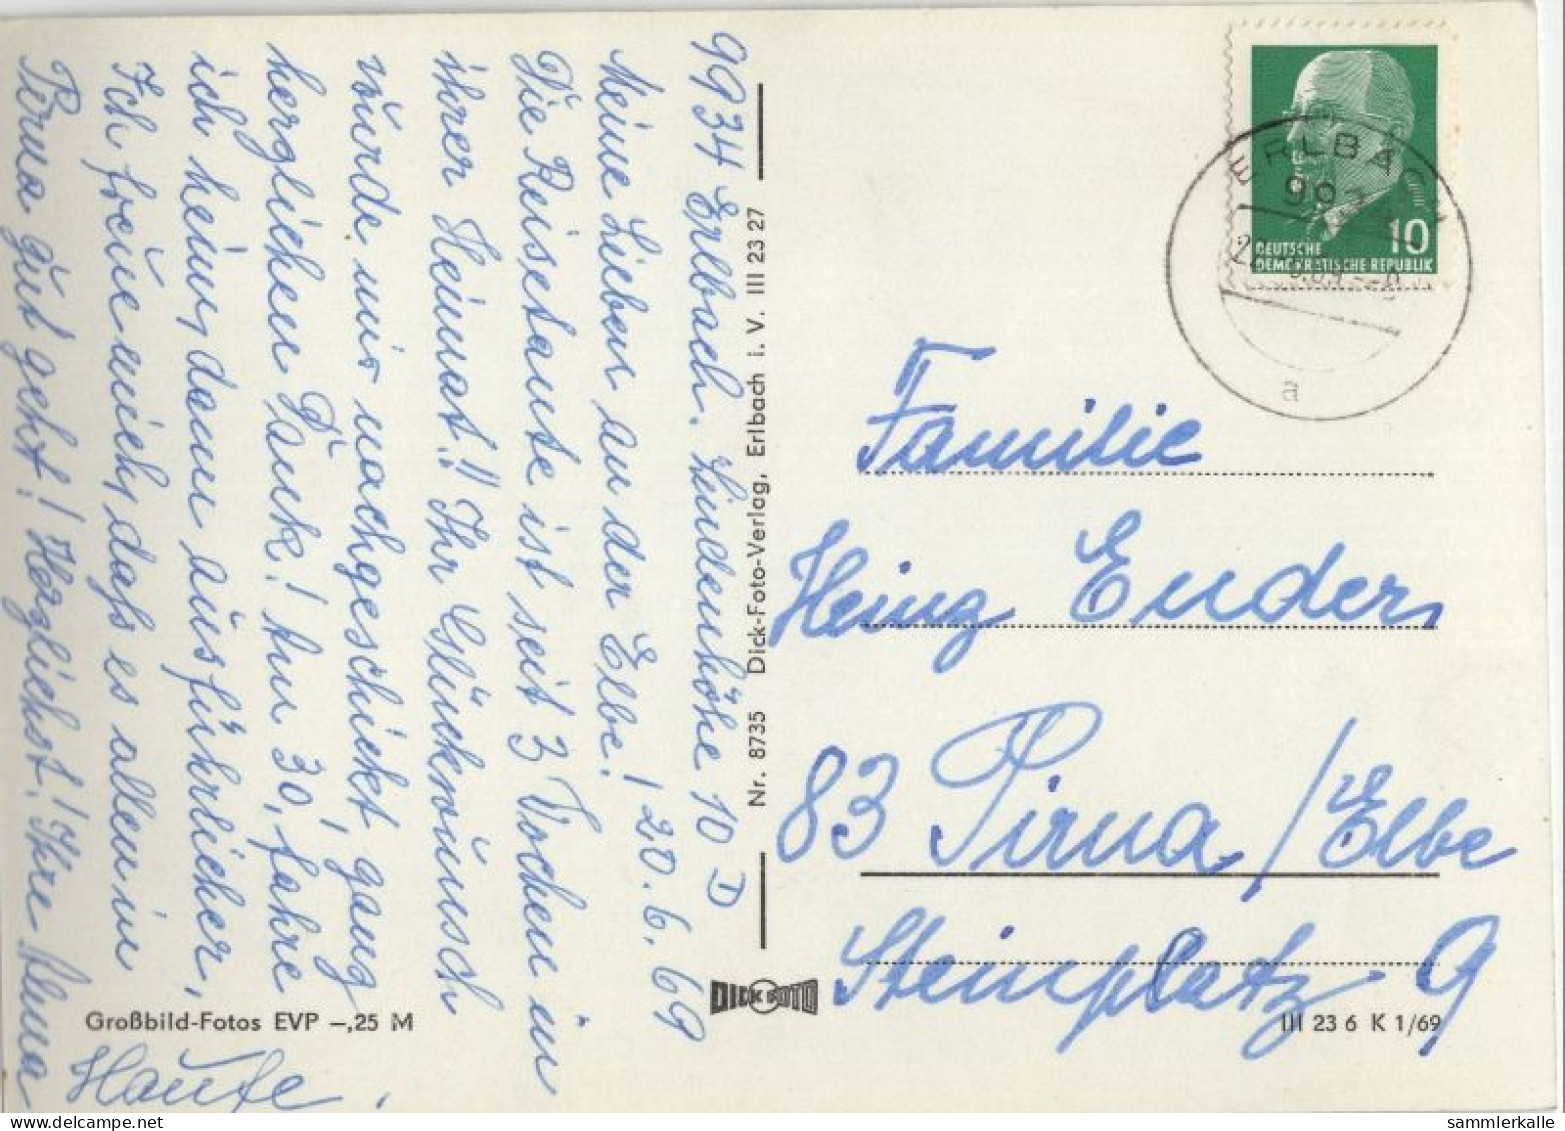 9934 Erlbach. Lindenhöhe 10 D
Meine Lieben an der Elbe! 20.6.69
Die Reisetante ist seit 3 Wochen in
ihrer Heimat!! Ihr Glückwunsch
wurde mir nachgeschickt, ganz
herzlichen Dank! Am 30. fahre
ich heim, dann ausführlicher,
Ich freue mich, dass es allen in
Pirna gut geht! Herzlichst! Ihre Anna
Haufe.
Großbild-Fotos EVP –,25 M
Nr. 8735 Dick-Foto-Verlag, Erlbach i. V. III 23 27
DICK FOTO
DEUTSCHE
DEMOKRATISCHE REPUBLIK
10
ERLBACH
a
Familie
Heinz Enders
83 Pirna/Elbe
Steinplatz 9
III 23 6 K 1/69
sammlerkalle